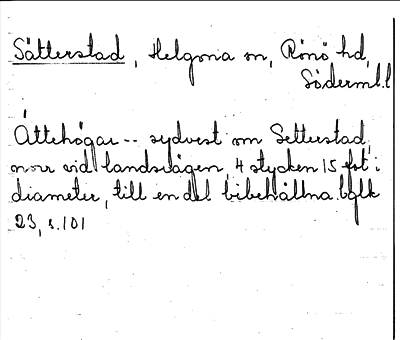 Sätterstad, Helgona sn, Rönö hd,
Söderml.l
Ättehögar -- sydvest om Setterstad,
norr vid landsvägen 4 stycken 15 fot i
diameter, till en del bibehållna. bglk
23, s. 101